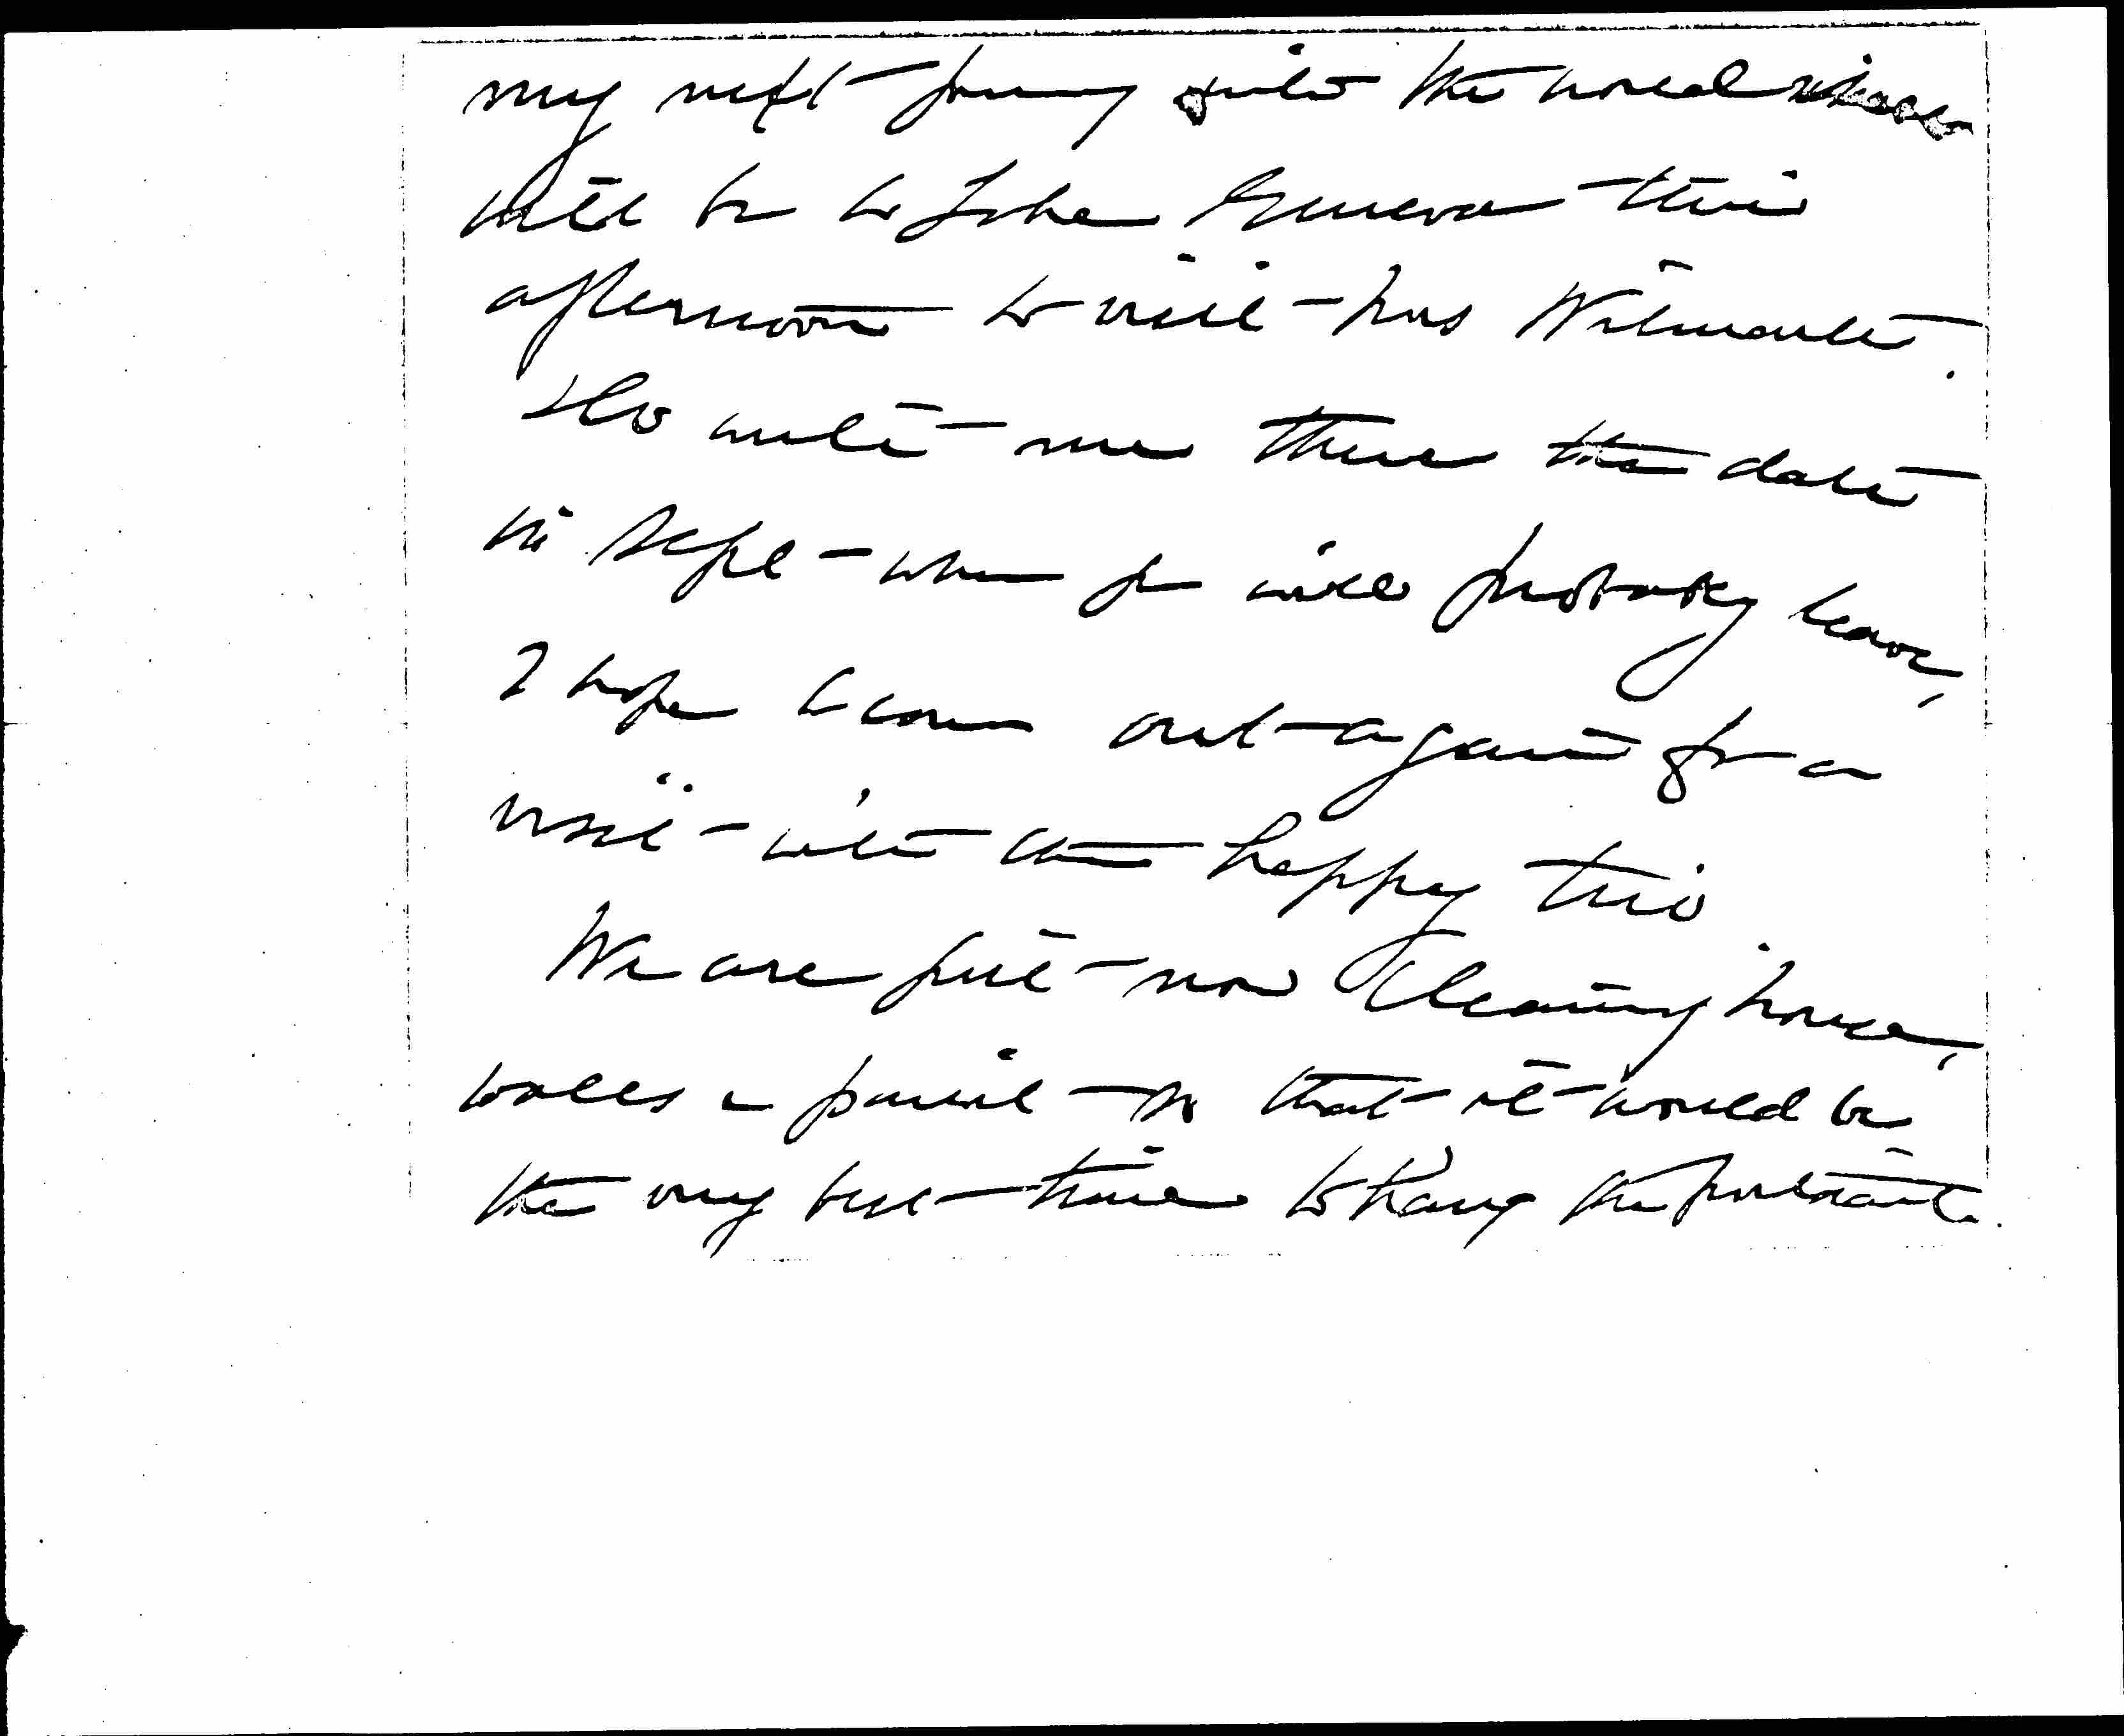 my next journey into the world
will be to Lake Geneva this
afternoon to visit Mrs Wilmarth.
Do write me there the date
in Sept - when you will probably leave,
I hope to come out again for a
visit - with the happy trio
We are just now cleaning house,
walls & paint - so that it would be
the very best time to hang the portrait.